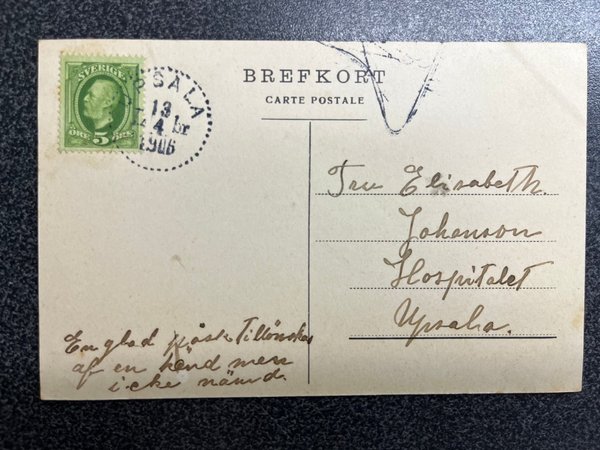 SVERIGE
ÖRE 5 ÖRE
UPSALA
13
4
1906
BREFKORT
CARTE POSTALE
Fru Elisabeth.
Johanson
Hospitalet
Upsala.
En glad påsk Tillönskas
af en känd men
icke nämd.